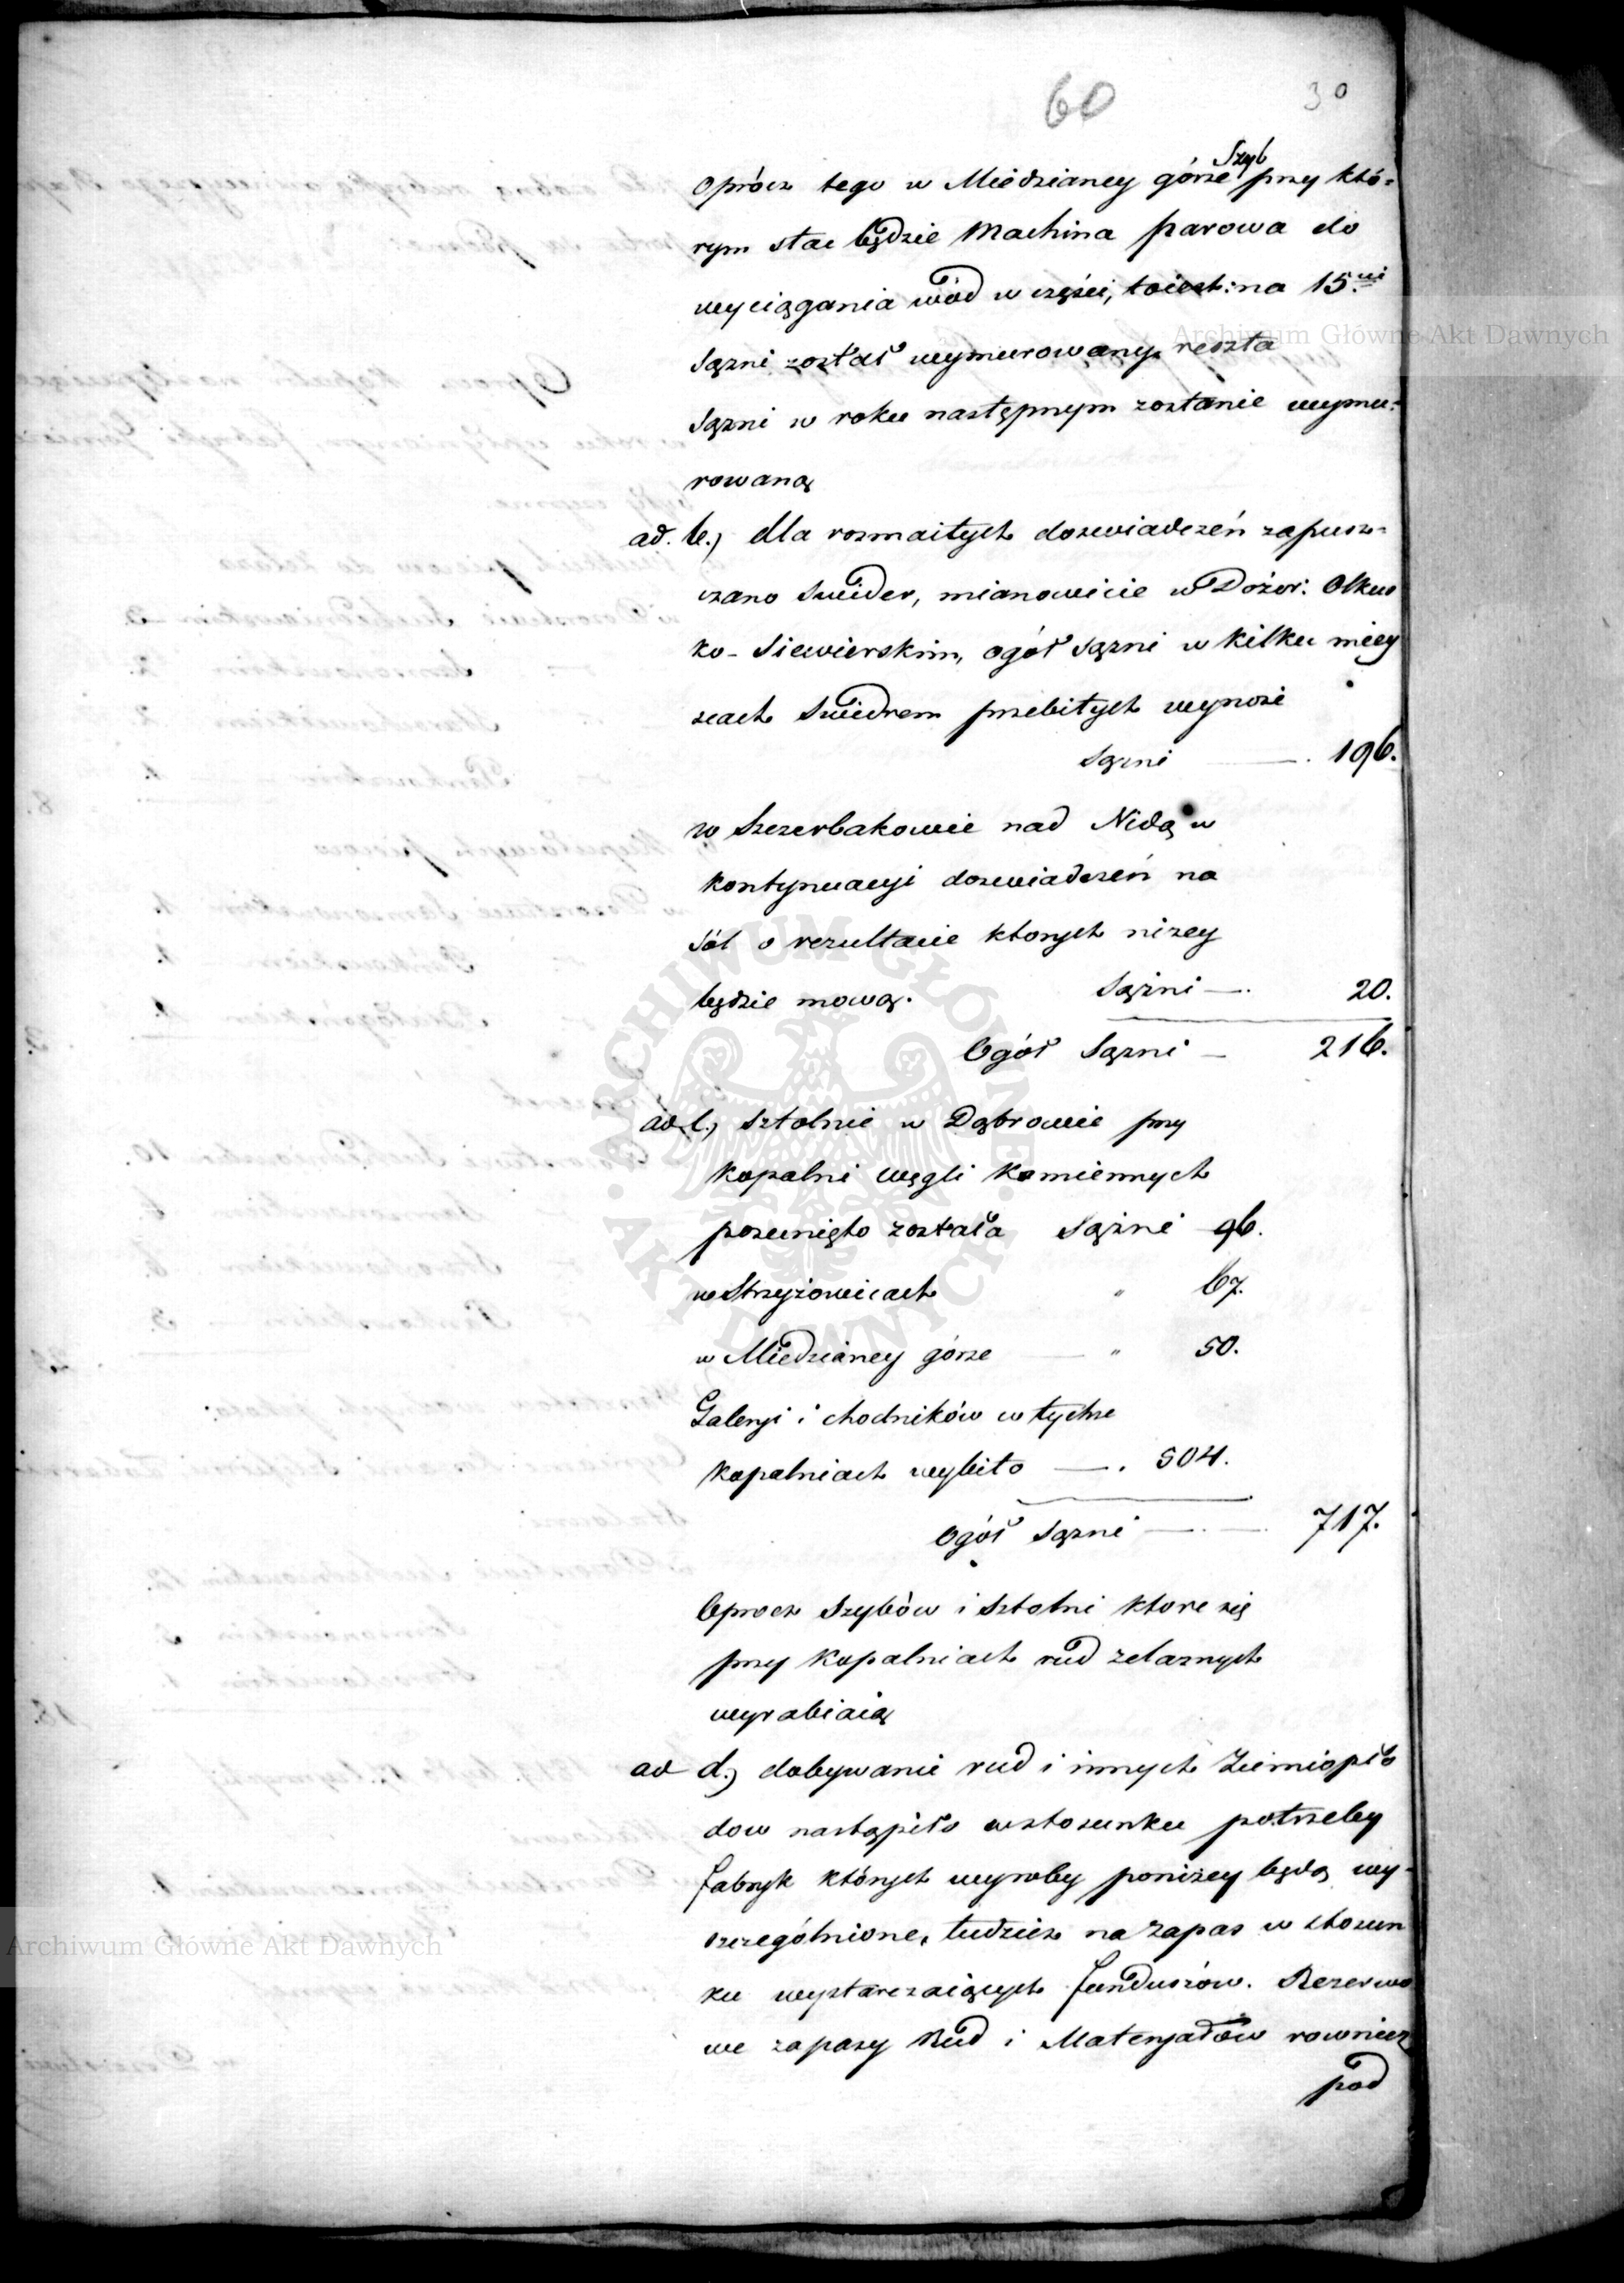 60 30
oprócz tego w Miedzianey górze Szyb przy któ=
rym stac będzie Machina parowa do
wyciągania wód w części, toiest: na 15.tui
Sązni został wymurowany, reszta
Sązni w roku następnym zostanie wymu=
rowaną
ad. b.) dla rozmaitych doswiadczeń zapusz=
czano Swider, mianowicie w Dozor: Olkus
ko-Siewierskim, ogół sązni w kilku miey
scach Swidrem przebitych wynosi
Sązni — 196.
w Szczerbakowie nad Nidą w
kontynuacyi doswiadczeń na
Sól o rezultacie ktorych nizey
będzie mową. Sążni — 20.
Ogół Sązni — 216.
ad c.) Sztolnie w Dąbrowie przy
kopalni węgli kamiennych
posunięto została Sążni 96.
w Strzyżowicach " 67.
w Miedzianey górze — " 50.
Galeryi i chodników w tychże
kopalniach wybito — . 504.
Ogół Sązni — . — 717.
Oprocz Szybów i Sztolni ktore się
przy kopalniach rud zelaznych
wyrabiaią
ad d.) dobywanie rud i innych Ziemiopło
dow nastąpiło w stosunku potrzeby
fabryk których wyroby poniżey będą wy-
szczególnione, tudziesz na zapas w stosun
ku wystarczaiących funduszów. Rezerwo
we zapasy Rud i Materyałów rowniesz
pod
Archiwum Główne Akt Dawnych
Archiwum Główne Akt Dawnych
· ARCHIWUM GŁÓWNE · AKT DAWNYCH